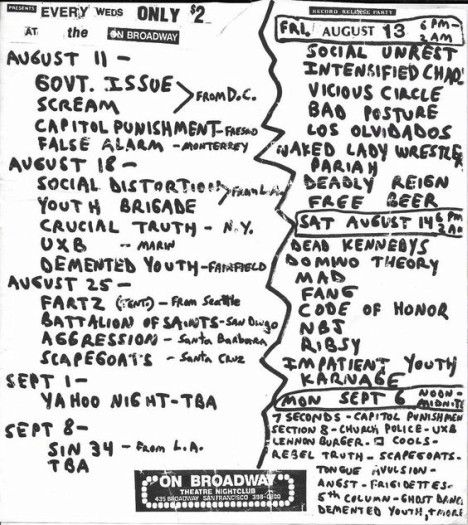 PRESENTS EVERY WEDS ONLY $2
AT the ON BROADWAY
AUGUST 11 -
GOVT. ISSUE
SCREAM
FROM D.C.
CAPITOL PUNISHMENT - FRESNO
FALSE ALARM - MONTERREY
AUGUST 18 -
SOCIAL DISTORTION
YOUTH BRIGADE
FROM L.A.
CRUCIAL TRUTH - N.Y.
UXB - MARIN
DEMENTED YOUTH - FAIRFIELD
AUGUST 25 -
FARTZ (TENT) - From Seattle
BATTALION OF SAINTS - SAN DIEGO
AGGRESSION - Santa Barbara
SCAPEGOATS - Santa Cruz
SEPT 1 -
YAHOO NIGHT - TBA
SEPT 8 -
SIN 34 - From L.A.
TBA
ON BROADWAY
THEATRE NIGHTCLUB
435 BROADWAY SAN FRANCISCO
RECORD RELEASE PARTY
FRI, AUGUST 13 6PM-
2AM
SOCIAL UNREST
INTENSIFIED CHAO
VICIOUS CIRCLE
BAD POSTURE
LOS OLVIDADOS
NAKED LADY WRESTLER
PARIAH
DEADLY REIGN
FREE BEER
SAT AUGUST 14 6PM
2AM
DEAD KENNEDYS
DOMINO THEORY
MAD
FANG
CODE OF HONOR
NBJ
RIBSY
IMPATIENT YOUTH
KARNAGE
MON SEPT 6 NOON-
MIDNITE
7 SECONDS - CAPITOL PUNISHMEN
SECTION 8 - CHURCH POLICE - UXB
LENNON BURGER - COOLS -
REBEL TRUTH - SCAPEGOATS -
TONGUE AVULSION -
ANGST - FRIGIDETTES -
5th COLUMN - GHOST DANC
DEMENTED YOUTH, + MORE